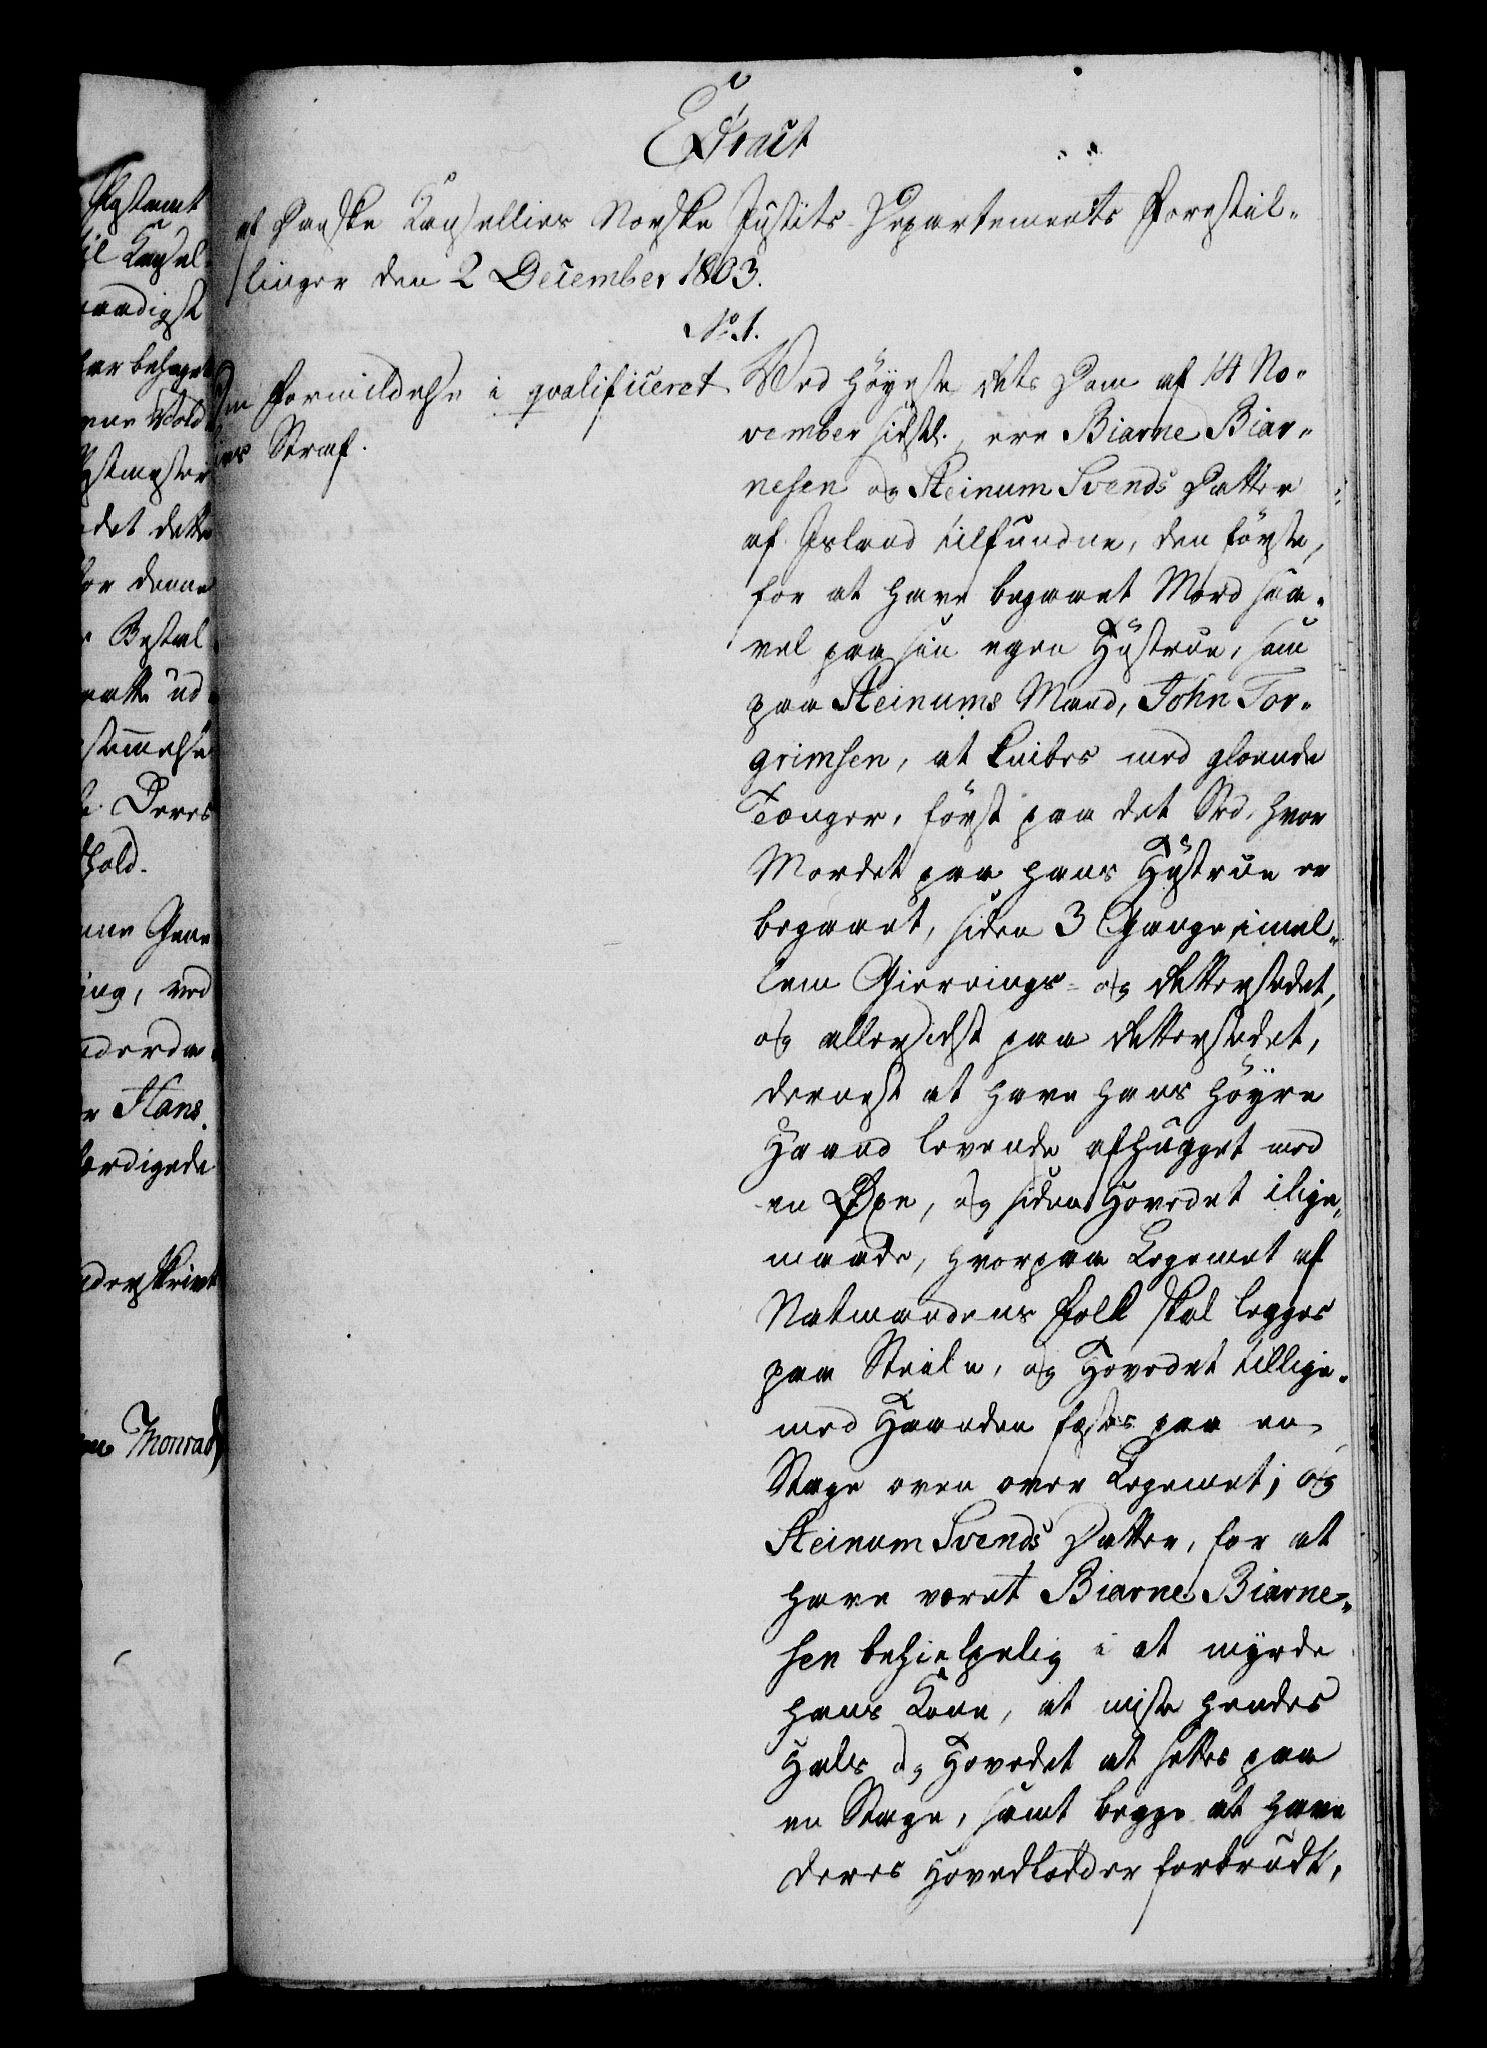 Extract
af Danske Cancelliers Norske Justits-Departements Forestil-
linger den 2 December 1803.
No. 1.
Om Formildelse i qvalificeret
Livs Straf.
Ved Høyeste Rets Dom af 14 No-
vember sidstl., ere Biarne Biar-
nesen og Steinum Svends Datter
af Island tilfundne, den förste,
for at have begaaet Mord saa-
vel paa sin egen Hustrue, som
paa Steinums Mand, John Tor-
grimsen, at knibes med gloende
Tænger, först paa det Sted, hvor
Mordet paa hans Hustrue er
begaaet, siden 3 Gange imel-
lem Giernings- og Rettersædet,
og allersidst paa Rettersædet,
dernest at have hans höyre
Haand levende afhugget med
en Øxe, og siden Hovedet ilige-
maade, hvorpaa Legemet af
Natmandens Folk skal legges
paa Steile, og Hovedet tillige-
med Haanden festes paa en
Stage oven over Legemet; og
Steinum Svends Datter, for at
have været Biarne Biarne-
sen behielpelig i at myrde
hans Kone, at miste hendes
Hals og Hovedet at settes paa
en Stage, samt begge at have
deres Hovedlodder forbrudt,
Postamt
til Cancel-
naadigst
har behaget
Vold
Postmester
det dette
for denne
Bestal
ratte ud-
stemmelse
Deres
hold.
Gene
ing, ved
Hans
færdigede
underskrive
Monrad